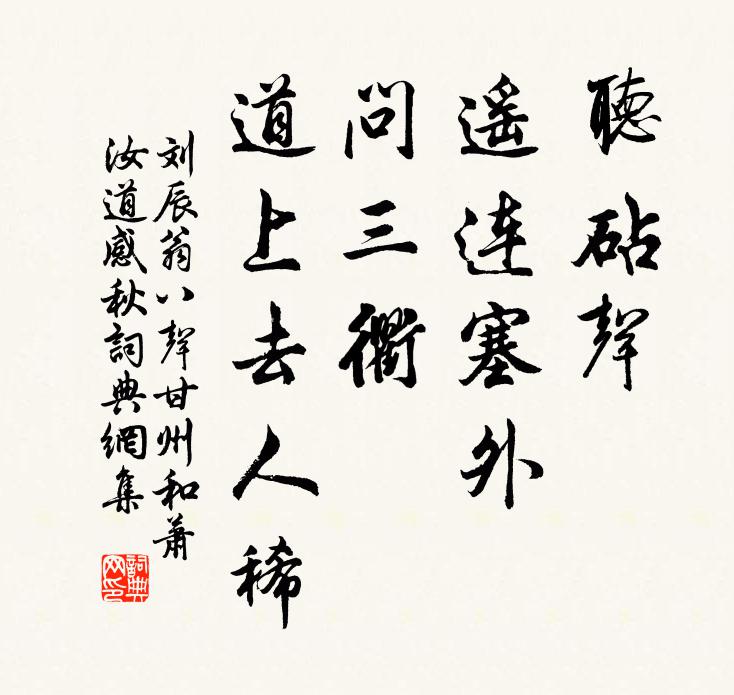 聽砧聲
遥連塞外
問三衢
道上去人稀
刘辰翁八聲甘州和蕭
汝道感秋詞典網集
詞典网印